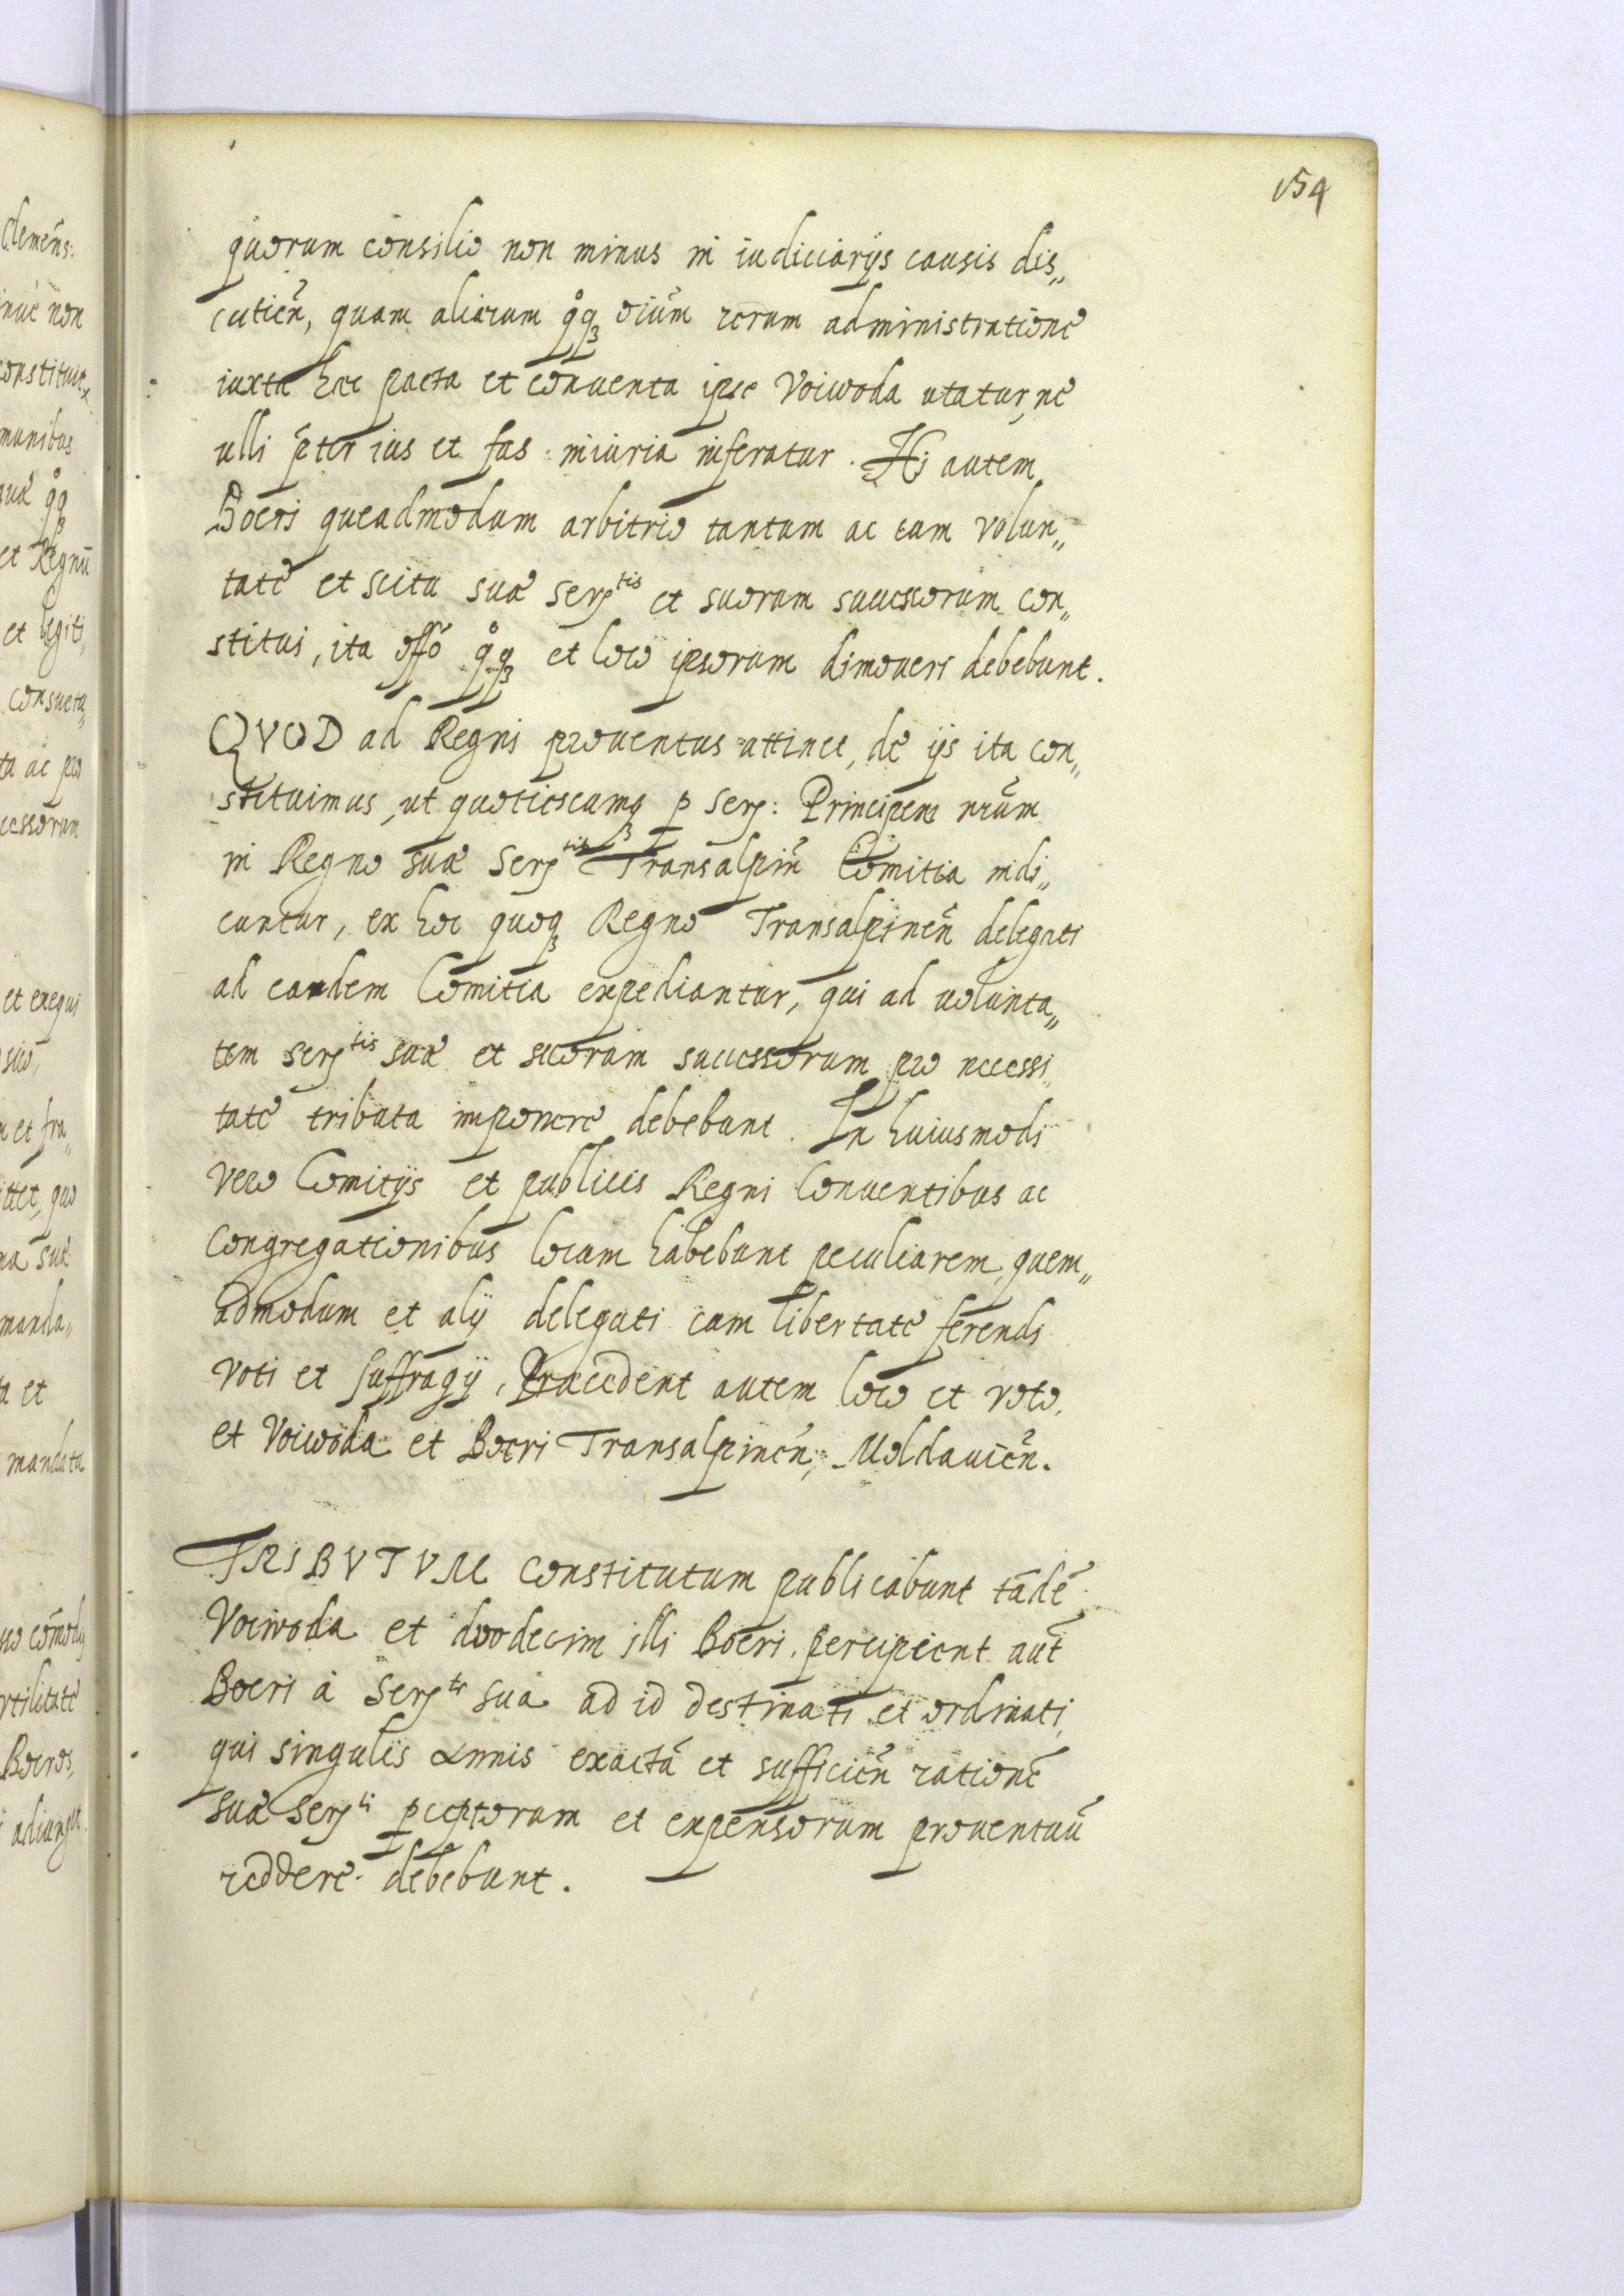 154
quorum consilio non minus in iudiciarijs causis dis„
cutien̄, quam aliarum q̊qꝫ oium̄ rerum administratione
iuxta hæc pacta et conuenta ipse Voiwoda utatur, ne
ulli p̄ter ius et fas iniuria inferatur. Hi autem
Boeri queadmodum arbitrio tantum ac cum volun„
tate et scitu suæ Serᵗⁱˢ et suorum successorum con„
stitui, ita offō q̊qꝫ et loco ipsorum dimoueri debebunt.
QVOD ad Regni prouentus attinet, de ijs ita con„
stituimus, ut quotiescumqꝫ ꝑ Ser: Principem nrūm
in Regno suæ Serᵗⁱˢ Transalpin̄ Comitia indi„
cuntur, ex hoc quoqꝫ Regno Transalpinen̄ delegati
ad eandem Comitia expediantur, qui ad uolunta„
tem Serᵗⁱˢ suæ et suorum successorum pro necessi„
tate tributa imponere debebunt. In huiusmodi
vero Comitijs et publicis Regni Conuentibus ac
Congregationibus locum habebunt peculiarem, quem„
admodum et alij delegati cum libertate ferendi
voti et suffragij, Præcedent autem loco et voto,
et Voiwoda et Boeri Transalpinen̄, Moldauien̄.
TRIBVTVM constitutum publicabunt tādē
Voiwoda et duodecim illi Boeri. percipient aut̄
Boeri à Serᵗᵉ sua ad id destinati et ordinati,
qui singulis annis exactā et sufficien̄ rationē
suæ Serᵗⁱ ꝑceptorum et expensorum prouentuū
reddere debebunt.